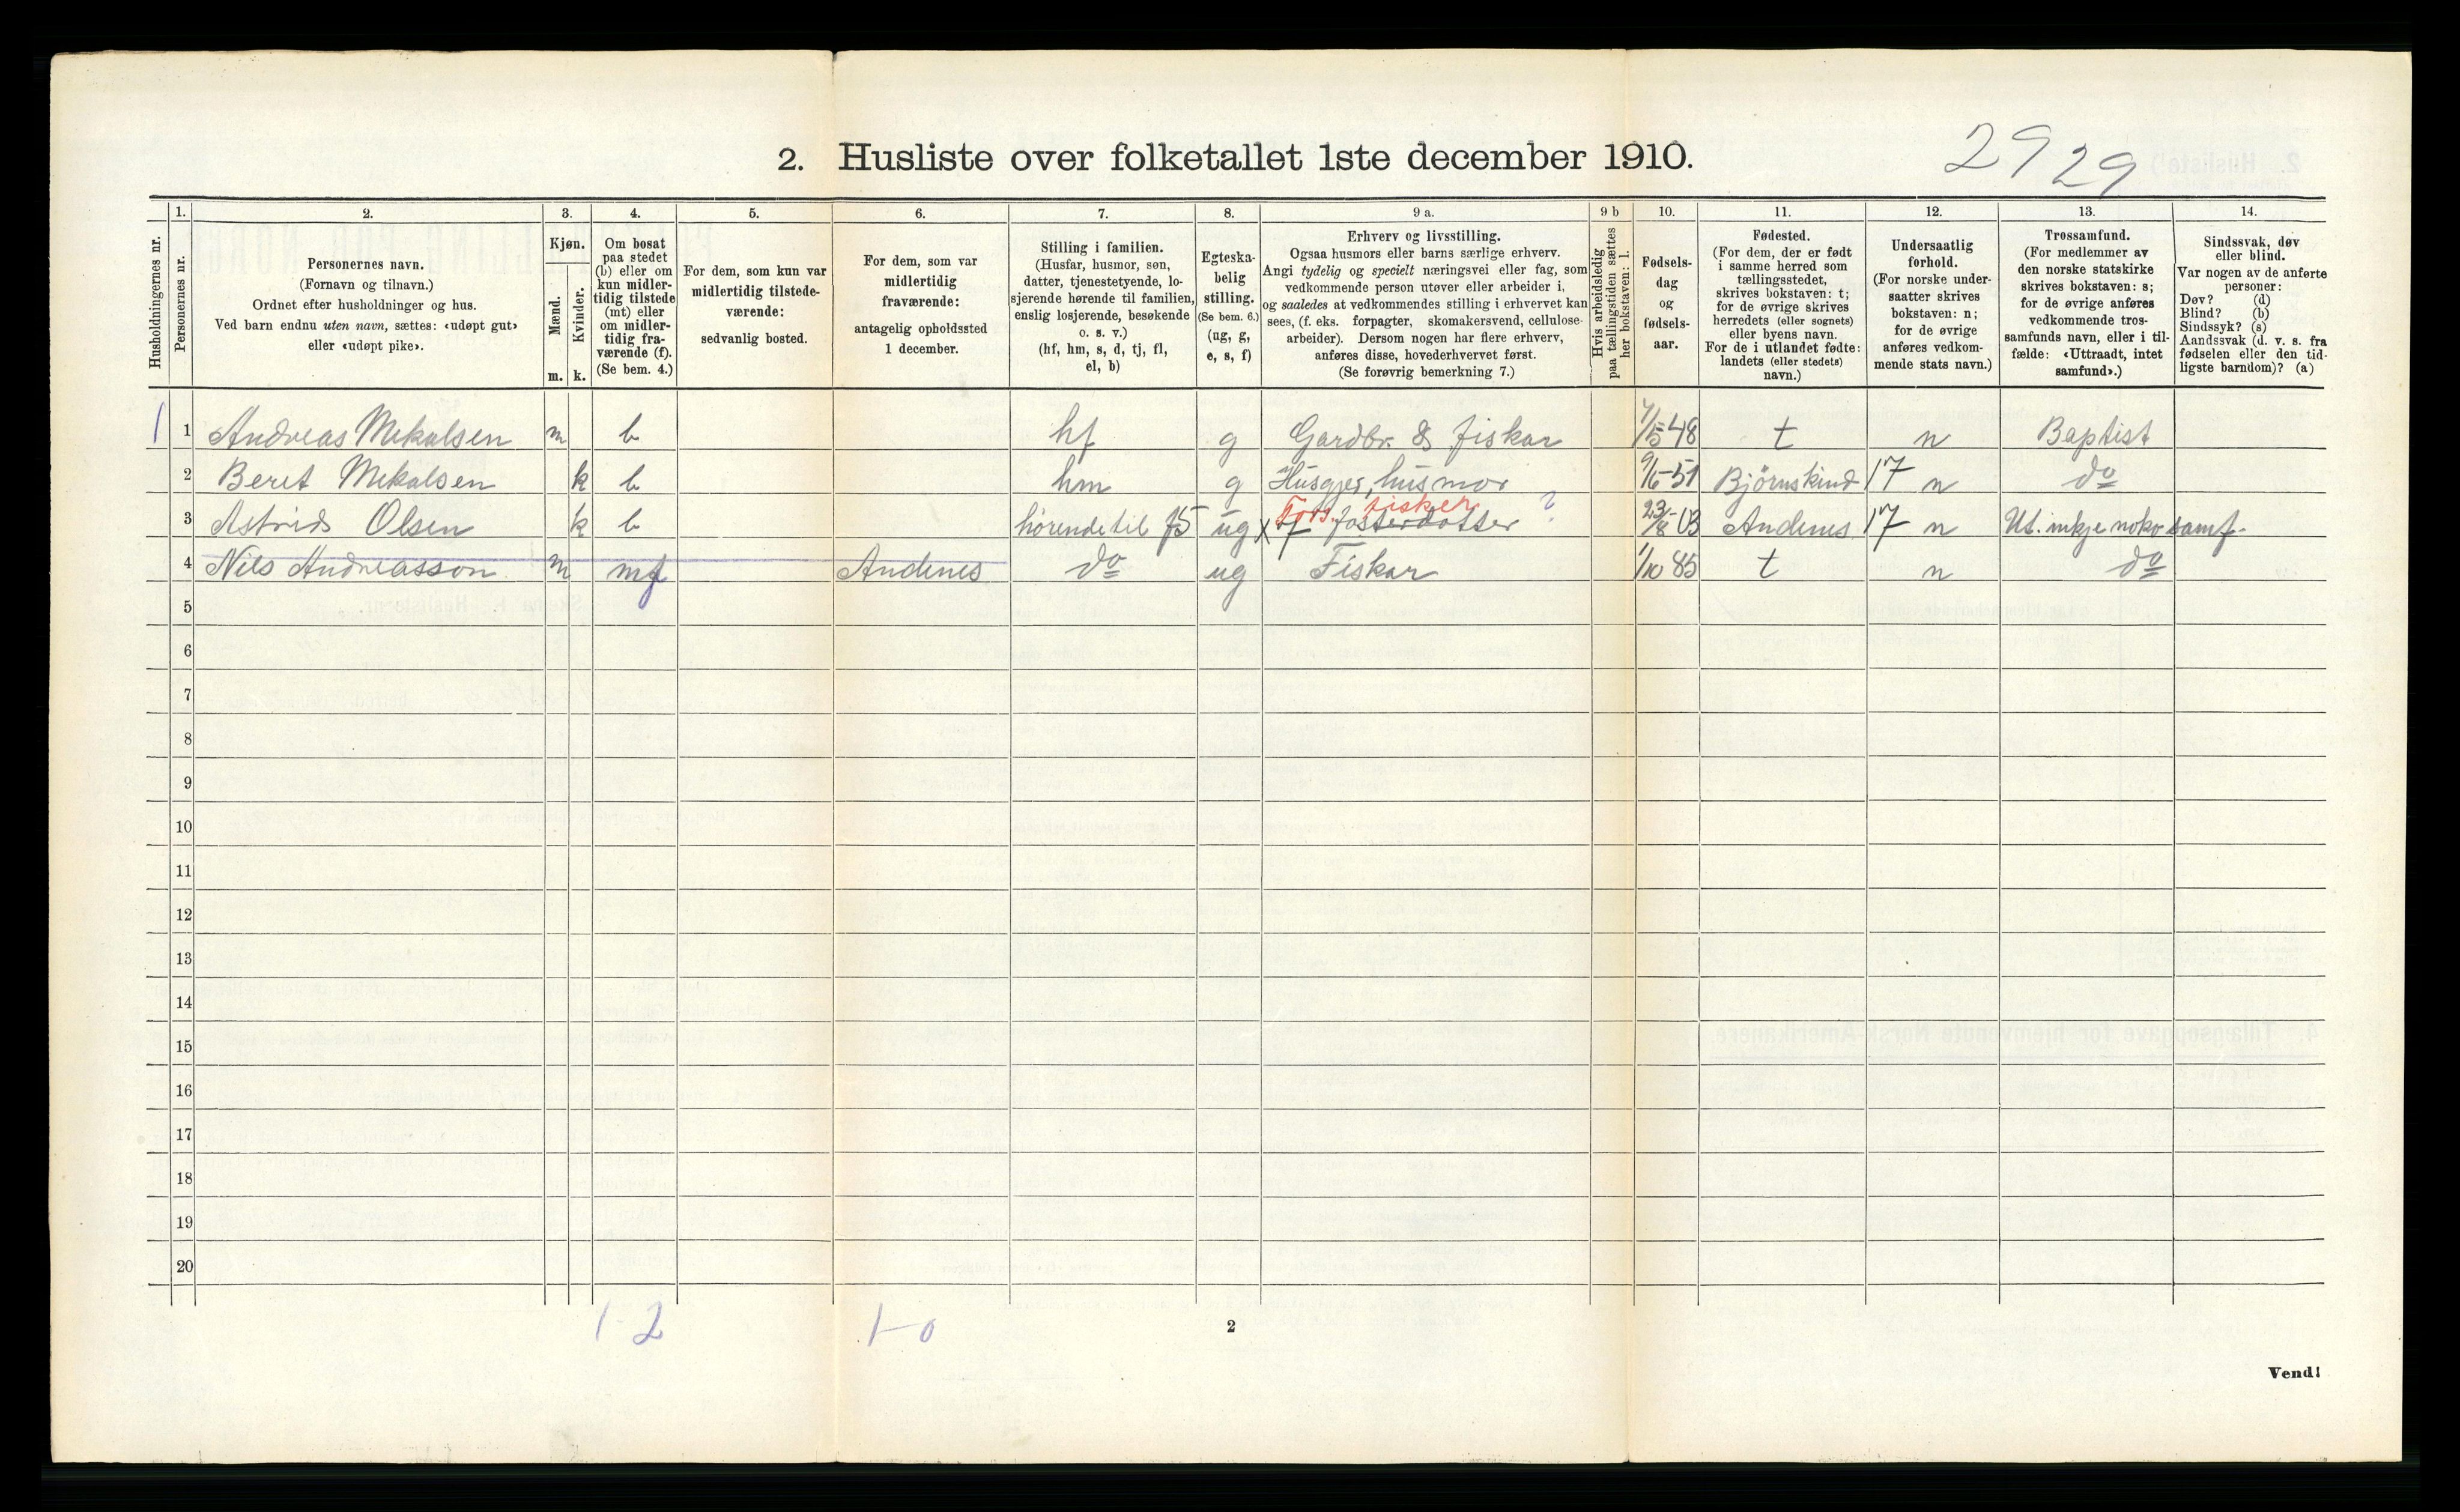 2. Husliste over folketallet 1ste december 1910.
29 29
Husholdningernes nr.
1.
Personernes nr.
2.
Personernes navn.
(Fornavn og tilnavn.)
Ordnet efter husholdninger og hus.
Ved barn endnu uten navn, sættes: «udøpt gut»
eller «udøpt pike».
3.
Kjøn.
Mænd.
Kvinder.
m. k.
4.
Om bosat
paa stedet
(b) eller om
kun midler-
tidig tilstede
(mt) eller
om midler-
tidig fra-
værende (f).
(Se bem. 4.)
5.
For dem, som kun var
midlertidig tilstede-
værende:
sedvanlig bosted.
6.
For dem, som var
midlertidig
fraværende:
antagelig opholdssted
1 december.
7.
Stilling i familien.
(Husfar, husmor, søn,
datter, tjenestetyende, lo-
sjerende hørende til familien,
enslig losjerende, besøkende
o. s. v.)
(hf, hm, s, d, tj, fl,
el, b)
8.
Egteska-
belig
stilling.
(Se bem. 6.)
(ug, g,
e, s, f)
9 a.
Erhverv og livsstilling.
Ogsaa husmors eller barns særlige erhverv.
Angi tydelig og specielt næringsvei eller fag, som
vedkommende person utøver eller arbeider i,
og saaledes at vedkommendes stilling i erhvervet kan
sees, (f. eks. forpagter, skomakersvend, cellulose-
arbeider). Dersom nogen har flere erhverv,
anføres disse, hovederhvervet først.
(Se forøvrig bemerkning 7.)
9 b
Hvis arbeidsledig
paa tællingstiden sættes
her bokstaven: l.
10.
Fødsels-
dag
og
fødsels-
aar.
11.
Fødested.
(For dem, der er født
i samme herred som
tællingsstedet,
skrives bokstaven: t;
for de øvrige skrives
herredets (eller sognets)
eller byens navn.
For de i utlandet fødte:
landets (eller stedets)
navn.)
12.
Undersaatlig
forhold.
(For norske under-
saatter skrives
bokstaven: n;
for de øvrige
anføres vedkom-
mende stats navn.)
13.
Trossamfund.
(For medlemmer av
den norske statskirke
skrives bokstaven: s;
for de øvrige anføres
vedkommende tros-
samfunds navn, eller i til-
fælde: «Uttraadt, intet
samfund».)
14.
Sindssvak, døv
eller blind.
Var nogen av de anførte
personer:
Døv? (d)
Blind? (b)
Sindssyk? (s)
Aandssvak (d. v. s. fra
fødselen eller den tid-
ligste barndom)? (a)
1 1 Andreas Mekalsen m b hf g Gardbr. & fiskar 7/5 48 t n Baptist
2 Beret Mekalsen k b hm g Husgjer, husmor 9/6-51 Bjørnskind 17 n do
Fors. fisker ?
3 Astrid Olsen k b hørende til f5 ug x 7 fosterdotter 23/8-03 Andenes 17 n Ut. inkje nokr samf.
4 Nils Andreasson m mf Andenes do ug Fiskar 1/10 85 t n do
5
6
7
8
9
10
11
12
13
14
15
16
17
18
19
20
1-2 1-0
2
Vend!